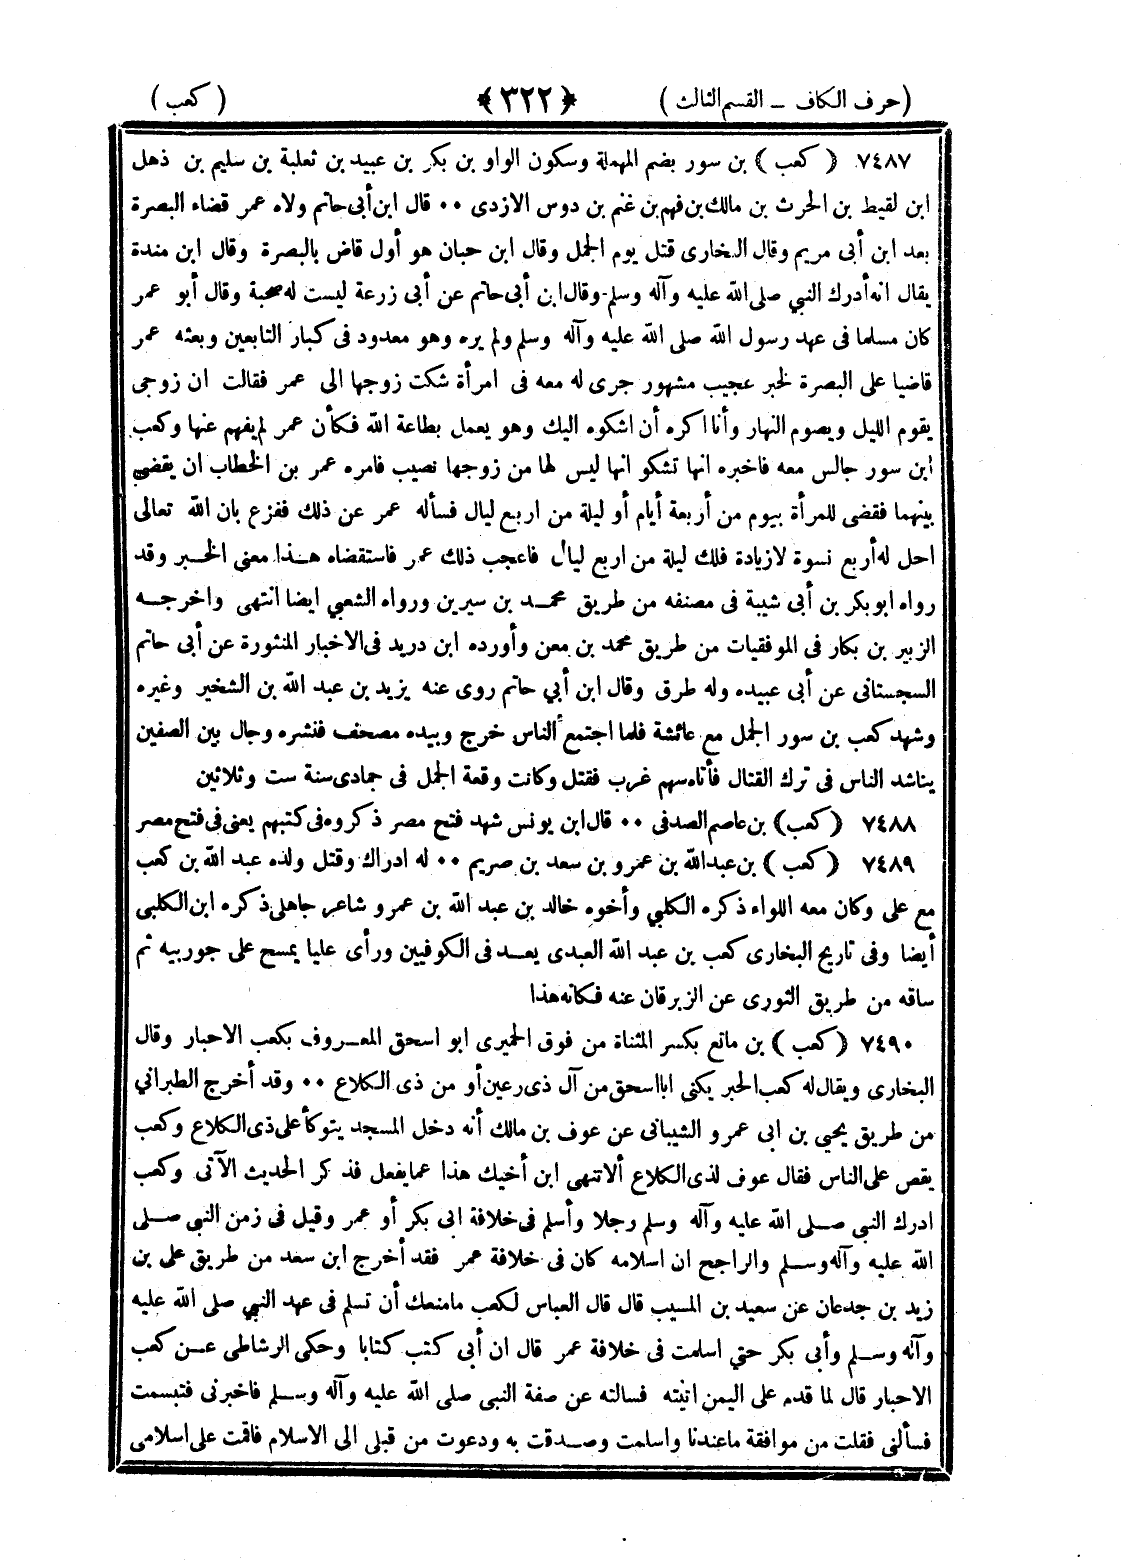 (حرف الكاف ـ القسم الثالث) ﴿٣٢٢﴾ (كعب)
٧٤٨٧ (كعب) بن سور بضم المهملة وسكون الواو بن بكر بن عبيد بن ثعلبة بن سليم بن ذهل
ابن لقيط بن الحرث بن مالك بن فهم بن غنم بن دوس الازدى ٠٠ قال ابن أبى حاتم ولاه عمر قضاء البصرة
بعد ابن أبى مريم وقال البخارى قتل يوم الجمل وقال ابن حبان هو أول قاض بالبصرة وقال ابن مندة
يقال انه أدرك النبي صلى الله عليه وآله وسلم وقال ابن أبى حاتم عن أبى زرعة ليست له صحبة وقال أبو عمر
كان مسلما فى عهد رسول الله صلى الله عليه وآله وسلم ولم يره وهو معدود فى كبار التابعين وبعثه عمر
قاضيا على البصرة لخبر عجيب مشهور جرى له معه فى امرأة شكت زوجها الى عمر فقالت ان زوجى
يقوم الليل ويصوم النهار وأنا اكره أن اشكوه اليك وهو يعمل بطاعة الله فكأن عمر لم يفهم عنها وكعب
ابن سور جالس معه فاخبره انها تشكو انها ليس لها من زوجها نصيب فامره عمر بن الخطاب ان يقضى
بينهما فقضى للمرأة بيوم من أربعة أيام أو ليلة من اربع ليال فسأله عمر عن ذلك ففزع بان الله تعالى
احل له أربع نسوة لازيادة فلك ليلة من اربع ليال فاعجب ذلك عمر فاستقضاه هذا معنى الخبر وقد
رواه ابو بكر بن أبى شيبة فى مصنفه من طريق محمد بن سيرين ورواه الشعبي ايضا انتهى واخرجه
الزبير بن بكار فى الموفقيات من طريق محمد بن معن وأورده ابن دريد فى الاخبار المنثورة عن أبى حاتم
السجستانى عن أبى عبيده وله طرق وقال ابن أبي حاتم روى عنه يزيد بن عبد الله بن الشخير وغيره
وشهد كعب بن سور الجمل مع عائشة فلما اجتمع الناس خرج وبيده مصحف فنشره وجال بين الصفين
يناشد الناس فى ترك القتال فأتاه سهم غرب فقتل وكانت وقعة الجمل فى جمادى سنة ست وثلاثين
٧٤٨٨ (كعب) بن عاصم الصدفى ٠٠ قال ابن يونس شهد فتح مصر ذكروه فى كتبهم يعنى فى فتح مصر
٧٤٨٩ (كعب) بن عبد الله بن عمرو بن سعد بن صريم ٠٠ له ادراك وقتل ولده عبد الله بن كعب
مع على وكان معه اللواء ذكره الكلبي وأخوه خالد بن عبد الله بن عمرو شاعر جاهلى ذكره ابن الكلبى
أيضا وفى تاريخ البخارى كعب بن عبد الله العبدى يعد فى الكوفيين ورأى عليا يمسح على جوربيه ثم
ساقه من طريق الثورى عن الزبرقان عنه فكانه هذا
٧٤٩٠ (كعب) بن ماتع بكسر المثناة من فوق الحميرى ابو اسحق المعروف بكعب الاحبار وقال
البخارى ويقال له كعب الحبر يكنى ابا اسحق من آل ذى رعين أو من ذى الكلاع ٠٠ وقد أخرج الطبراني
من طريق يحيي بن ابى عمرو الشيبانى عن عوف بن مالك أنه دخل المسجد يتوكأ على ذى الكلاع وكعب
يقص على الناس فقال عوف لذى الكلاع ألا تنهى ابن أخيك هذا عما يفعل فذكر الحديث الآتى وكعب
ادرك النبي صلى الله عليه وآله وسلم رجلا وأسلم فى خلافة ابى بكر أو عمر وقيل فى زمن النبي صلى
الله عليه وآله وسلم والراجح ان اسلامه كان فى خلافة عمر فقد أخرج ابن سعد من طريق على بن
زيد بن جدعان عن سعيد بن المسيب قال قال العباس لكعب مامنعك أن تسلم فى عهد النبي صلى الله عليه
وآله وسلم وأبى بكر حتي اسلمت فى خلافة عمر قال ان أبى كتب كتابا وحكى الرشاطى عن كعب
الاحبار قال لما قدم على اليمن اتيته فسالته عن صفة النبى صلى الله عليه وآله وسلم فاخبرنى فتبسمت
فسألنى فقلت من موافقة ماعندنا واسلمت وصدقت به ودعوت من قبلى الى الاسلام فاقمت على اسلامى